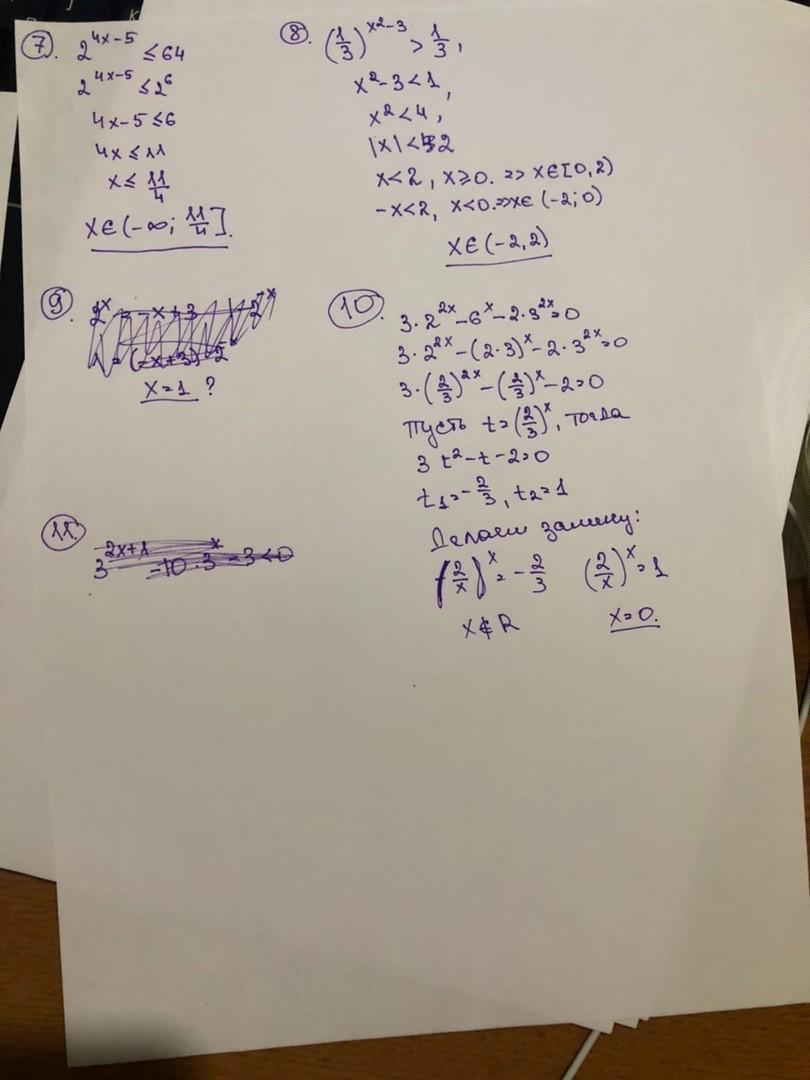 7. 2^{4x-5} ≤ 64
2^{4x-5} ≤ 2^6
4x-5 ≤ 6
4x ≤ 11
x ≤ 11/4
x∈(-∞; 11/4].
8. (1/3)^{x²-3} > 1/3,
x²-3<1,
x²<4,
|x|<2
x<2, x≥0. => x∈[0,2)
-x<2, x<0.=>x∈(-2;0)
x∈(-2,2)
9. 2^x = -x+3
x=1 ?
10. 3·2^{2x}-6^x-2·3^{2x}=0
3·2^{2x}-(2·3)^x-2·3^{2x}=0
3·(2/3)^{2x}-(2/3)^x-2=0
Пусть t=(2/3)^x, тогда
3t²-t-2=0
t₁=-2/3, t₂=1
Делаем замену:
(2/x)^x=-2/3 (2/x)^x=1
x∉R x=0.
11. 3^{2x+1}-10·3^x-3<0